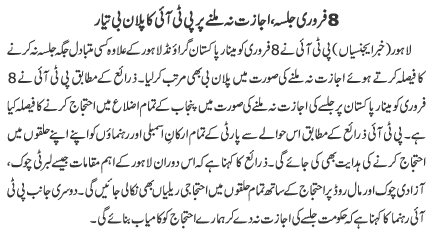 8 فروری جلسہ، اجازت نہ ملنے پر پی ٹی آئی کا پلان بی تیار
لاہور (خبر ایجنسیاں) پی ٹی آئی نے 8 فروری کو مینار پاکستان گراؤنڈ لاہور کے علاوہ کسی متبادل جگہ جلسہ نہ کرنے
کا فیصلہ کرتے ہوئے اجازت نہ ملنے کی صورت میں پلان بی بھی مرتب کر لیا۔ ذرائع کے مطابق پی ٹی آئی نے 8
فروری کو مینار پاکستان پر جلسے کی اجازت نہ ملنے کی صورت میں پنجاب کے تمام اضلاع میں احتجاج کرنے کا فیصلہ کیا
ہے۔ پی ٹی آئی ذرائع کے مطابق اس حوالے سے پارٹی کے تمام ارکان اسمبلی اور رہنماؤں کو اپنے اپنے حلقوں میں
احتجاج کرنے کی ہدایت بھی کی جائے گی۔ ذرائع کا کہنا ہے کہ اس دوران لاہور کے اہم مقامات جیسے لبرٹی چوک،
آزادی چوک اور مال روڈ پر احتجاج کے ساتھ تمام حلقوں میں احتجاجی ریلیاں بھی نکالی جائیں گی۔ دوسری جانب پی ٹی
آئی رہنما کا کہنا ہے کہ حکومت جلسے کی اجازت نہ دے کر ہمارے احتجاج کو کامیاب بنائے گی۔